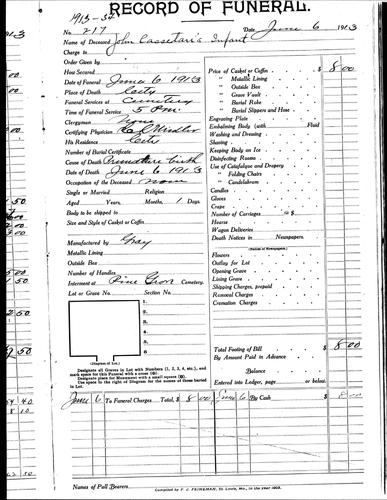 RECORD OF FUNERAL.
1913-34
No. 217 Date June 6 1913
Name of Deceased John Cassetari's Infant
Charge to
Order Given by
How Secured
Date of Funeral June 6 1913
Place of Death City
Funeral Services at Cemetery
Time of Funeral Service 5 P.M.
Clergyman None
Certifying Physician
His Residence City
Number of Burial Certificate
Cause of Death Premature birth
Date of Death June 6 1913
Occupation of the Deceased None
Single or Married Religion
Aged Years. Months, 1 Days.
Body to be shipped to
Size and Style of Casket or Coffin
Manufactured by Gray
Metallic Lining
Outside Box
Number of Handles
Interment at Pine Grove Cemetery.
Lot or Grave No. Section No.
1.
2.
3.
4.
5.
6
(Diagram of Lot.)
Designate all Graves in Lot with Numbers (1, 2, 3, 4, etc.), and
mark space for this Funeral with a cross
Designate place for Monument with a small square
Use space to the right of Diagram for the names of those buried
in Lot.
Price of Casket or Coffin $ 8 00
" Metallic Lining
" Outside Box
" Grave Vault
" Burial Robe
" Burial Slippers and Hose
Engraving Plate
Embalming Body (with Fluid
Washing and Dressing
Shaving
Keeping Body on Ice
Disinfecting Rooms
Use of Catafalque and Drapery
" Folding Chairs
" Candelabrum
Candles
Gloves
Crape
Number of Carriages @ $
Hearse
Wagon Deliveries
Death Notices in Newspapers.
(Names of Newspapers)
Flowers
Outlay for Lot
Opening Grave
Lining Grave
Shipping Charges, prepaid
Removal Charges
Cremation Charges
Total Footing of Bill $ 8 00
By Amount Paid in Advance
Balance
Entered into Ledger, page or below.
June 6 To Funeral Charges Total, $ 8 00 June 6 By Cash $ 8 00
Names of Pall Bearers.
Compiled by F. J. FEINEMAN, St. Louis, Mo., in the year 1902.